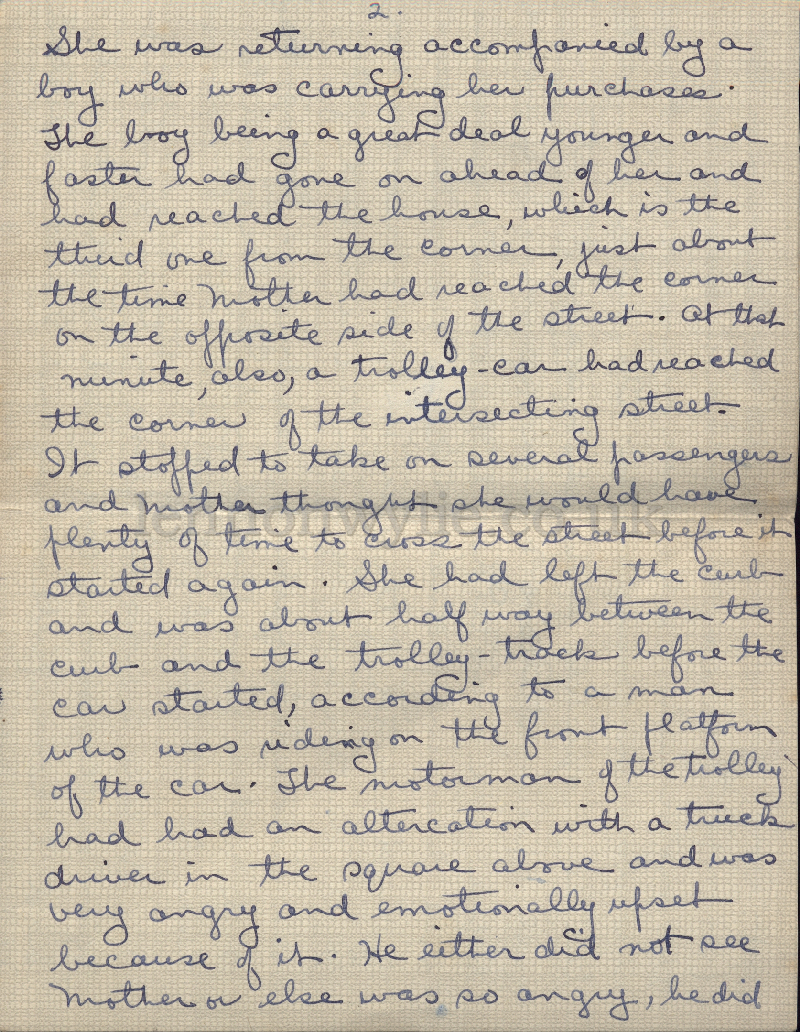 2.
She was returning accompanied by a
boy who was carrying her purchases.
The boy being a great deal younger and
faster had gone on ahead of her and
had reached the house, which is the
third one from the corner, just about
the time Mother had reached the corner
on the opposite side of the street. At that
minute, also, a trolley-car had reached
the corner of the intersecting street.
It stopped to take on several passengers
and Mother thought she would have
plenty of time to cross the street before it
started again. She had left the curb
and was about half way between the
curb and the trolley-track before the
car started, according to a man
who was riding on the front platform
of the car. The motorman of the trolley
had had an altercation with a truck
driver in the square above and was
very angry and emotionally upset
because of it. He either did not see
Mother or else was so angry, he did